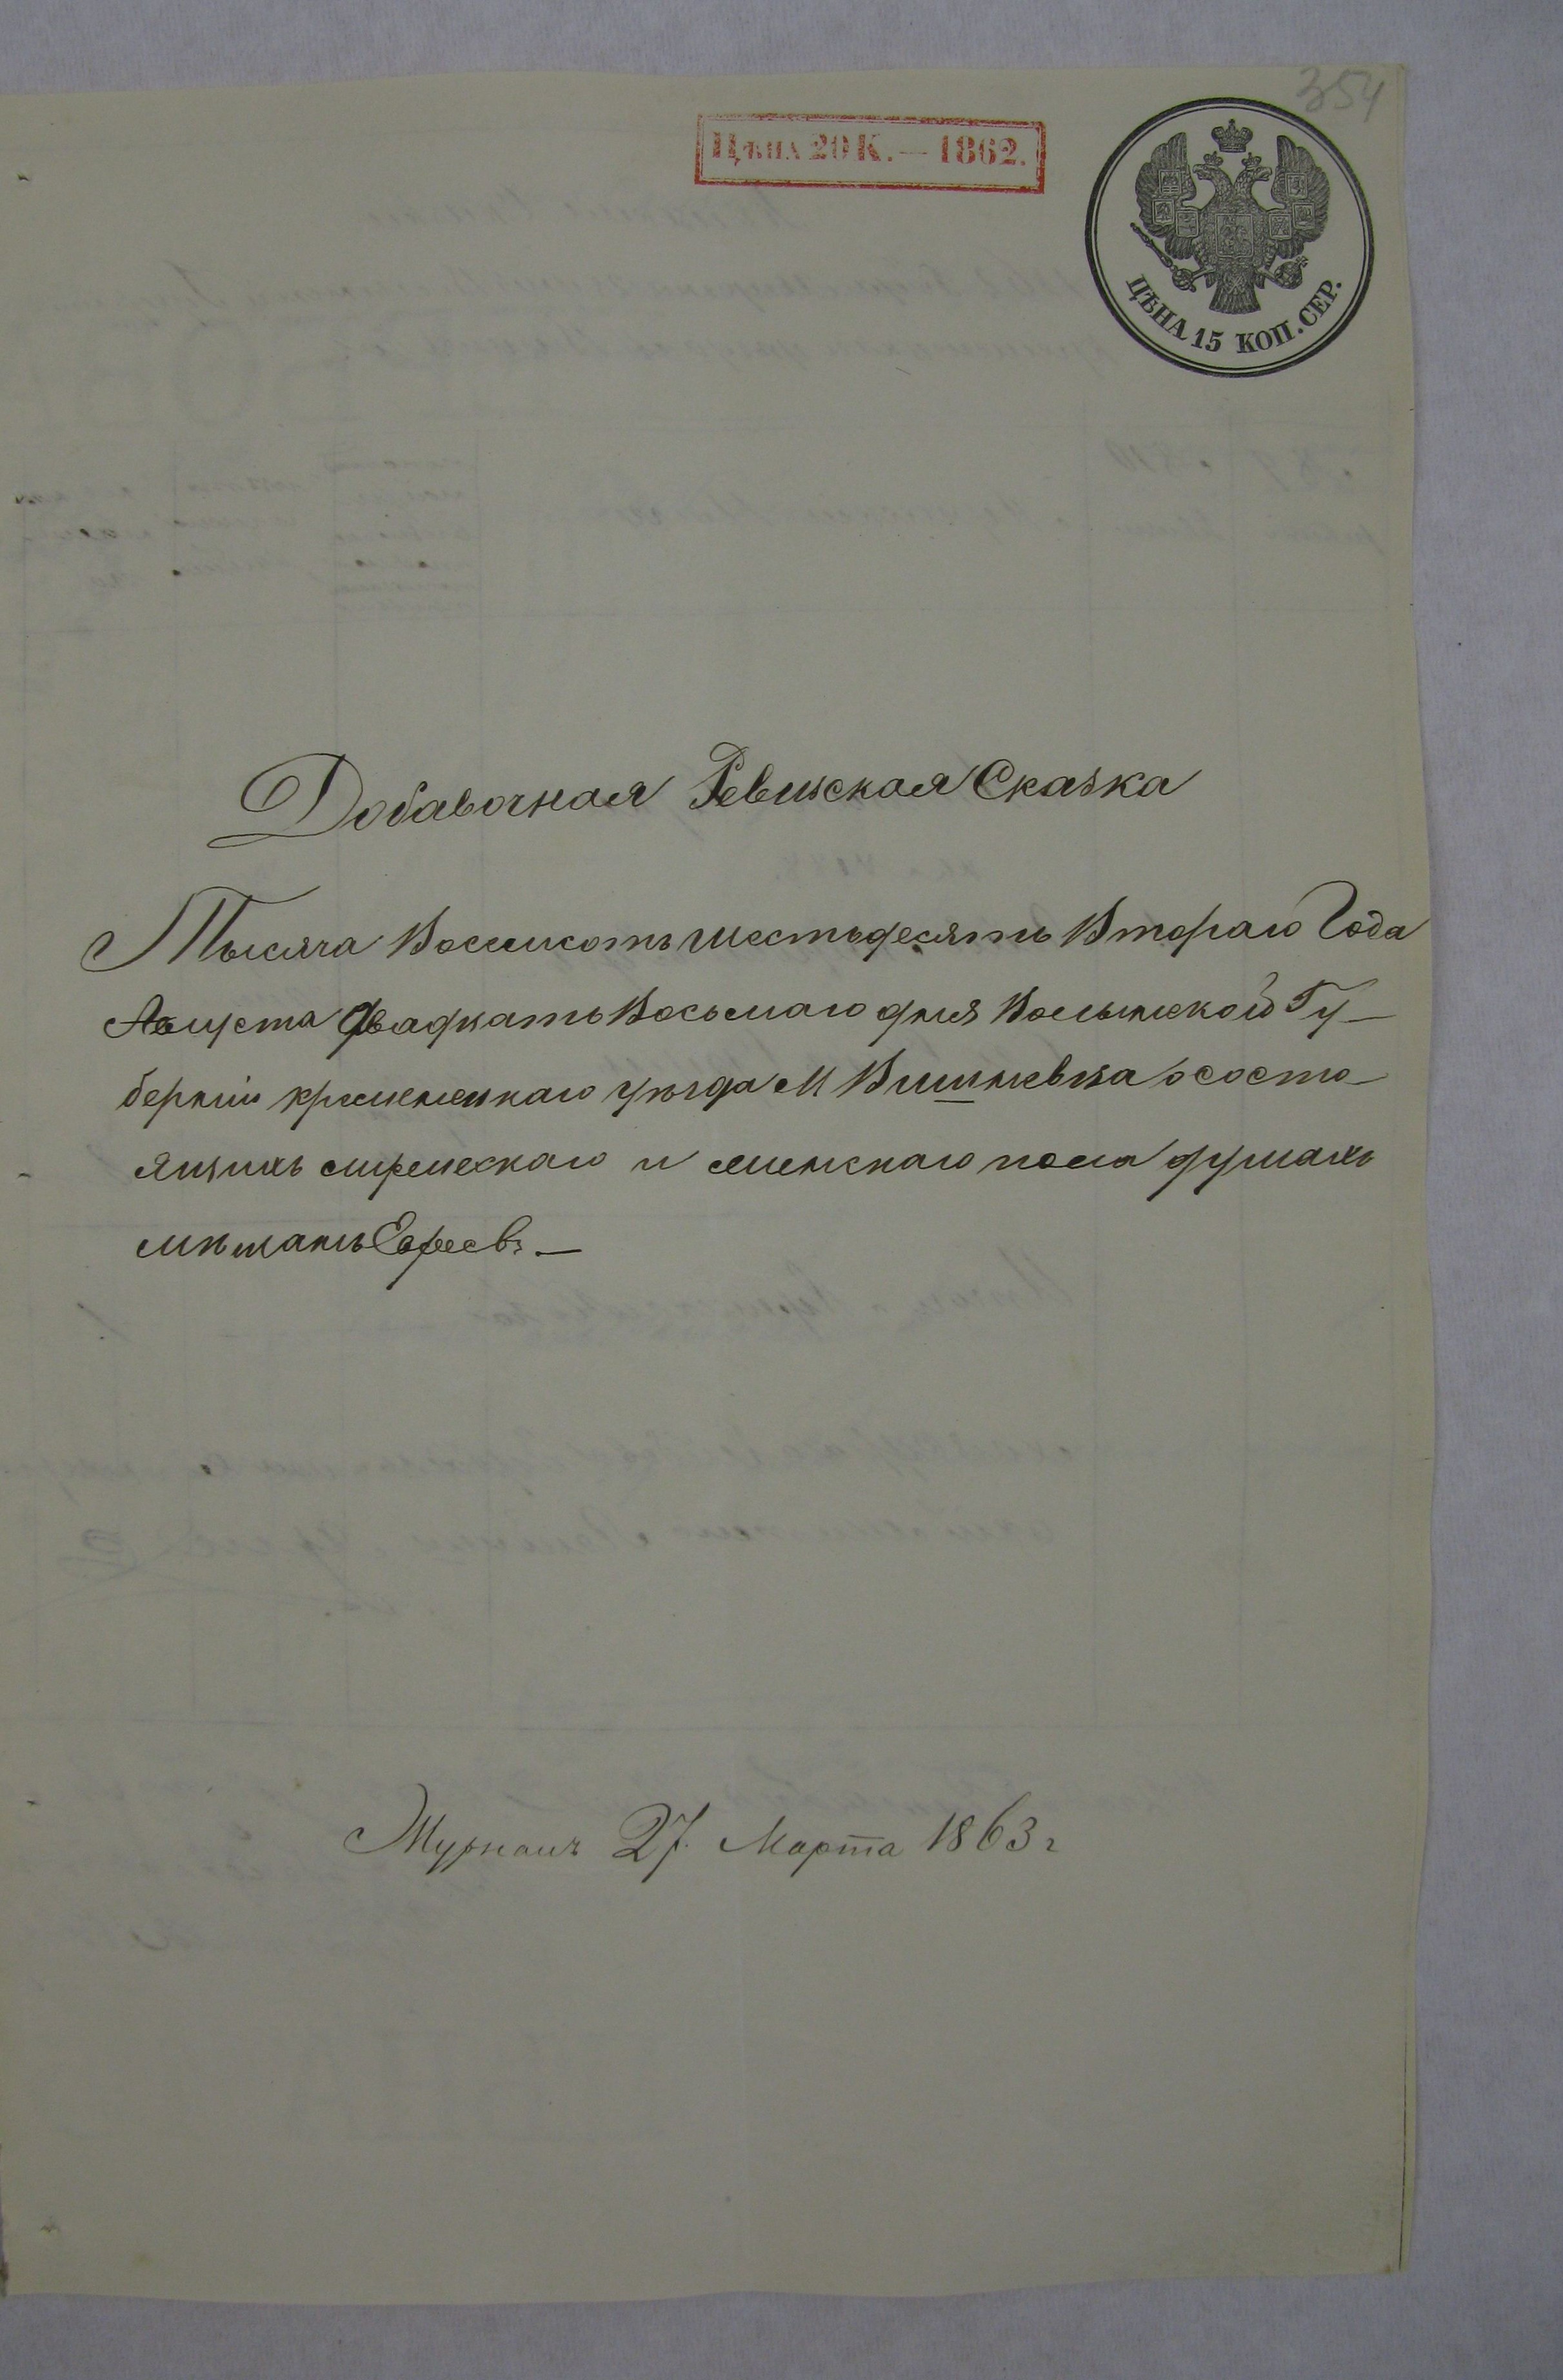 354
Цѣна 20 К. — 1862.
ЦѢНА 15 КОП. СЕР.
Добавочная Ревизская Сказка
Тысяча Восемсотъ шестьдесятъ Втораго Года
Августа двадцать Восьмаго дня Волынской Гу-
берніи кременецкаго уѣзда М Вишневца о состо-
ящихъ мужескаго и женскаго пола душахъ
мѣщанъ Евреевъ —
Журналъ 27. Марта 1863 г